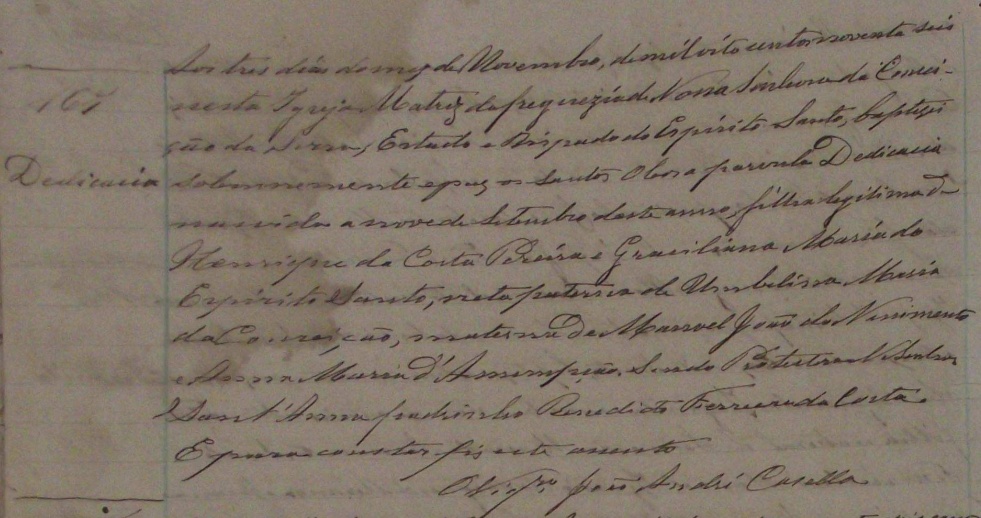 Aos tres dias do mez de Novembro, de mil oito centos noventa seis
167
nesta Igreja Matriz da freguezia de Nossa Senhora da Concei-
ção da Serra, Estado e Bispado do Espirito Santo, baptizei
Dedicacia
solemnemente e puz os Santos Oleos a parvula Dedicacia
nascida a nove de Setembro deste anno, filha legitima de
Henrique da Costa Pereira e Graciliana Maria do
Espirito Santo, neta paterna de Umbelina Maria
da Conceição, materna de Manoel João do Nascimento
e Anna Maria d'Assumpção. Sendo Protectora N. Senhora
Sant'Anna padrinho Benedicto Ferreira da Costa.
E para constar fis este assento
O Vigro João André Casella